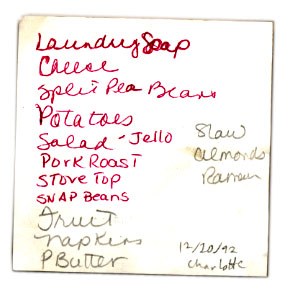 Laundry Soap
Cheese
Split Pea Beans
Potatoes
Salad - Jello
Pork Roast
Stove Top
Snap Beans
Fruit
Napkins
P Butter
Slaw
Almonds
Ramen
12/20/92
Charlotte